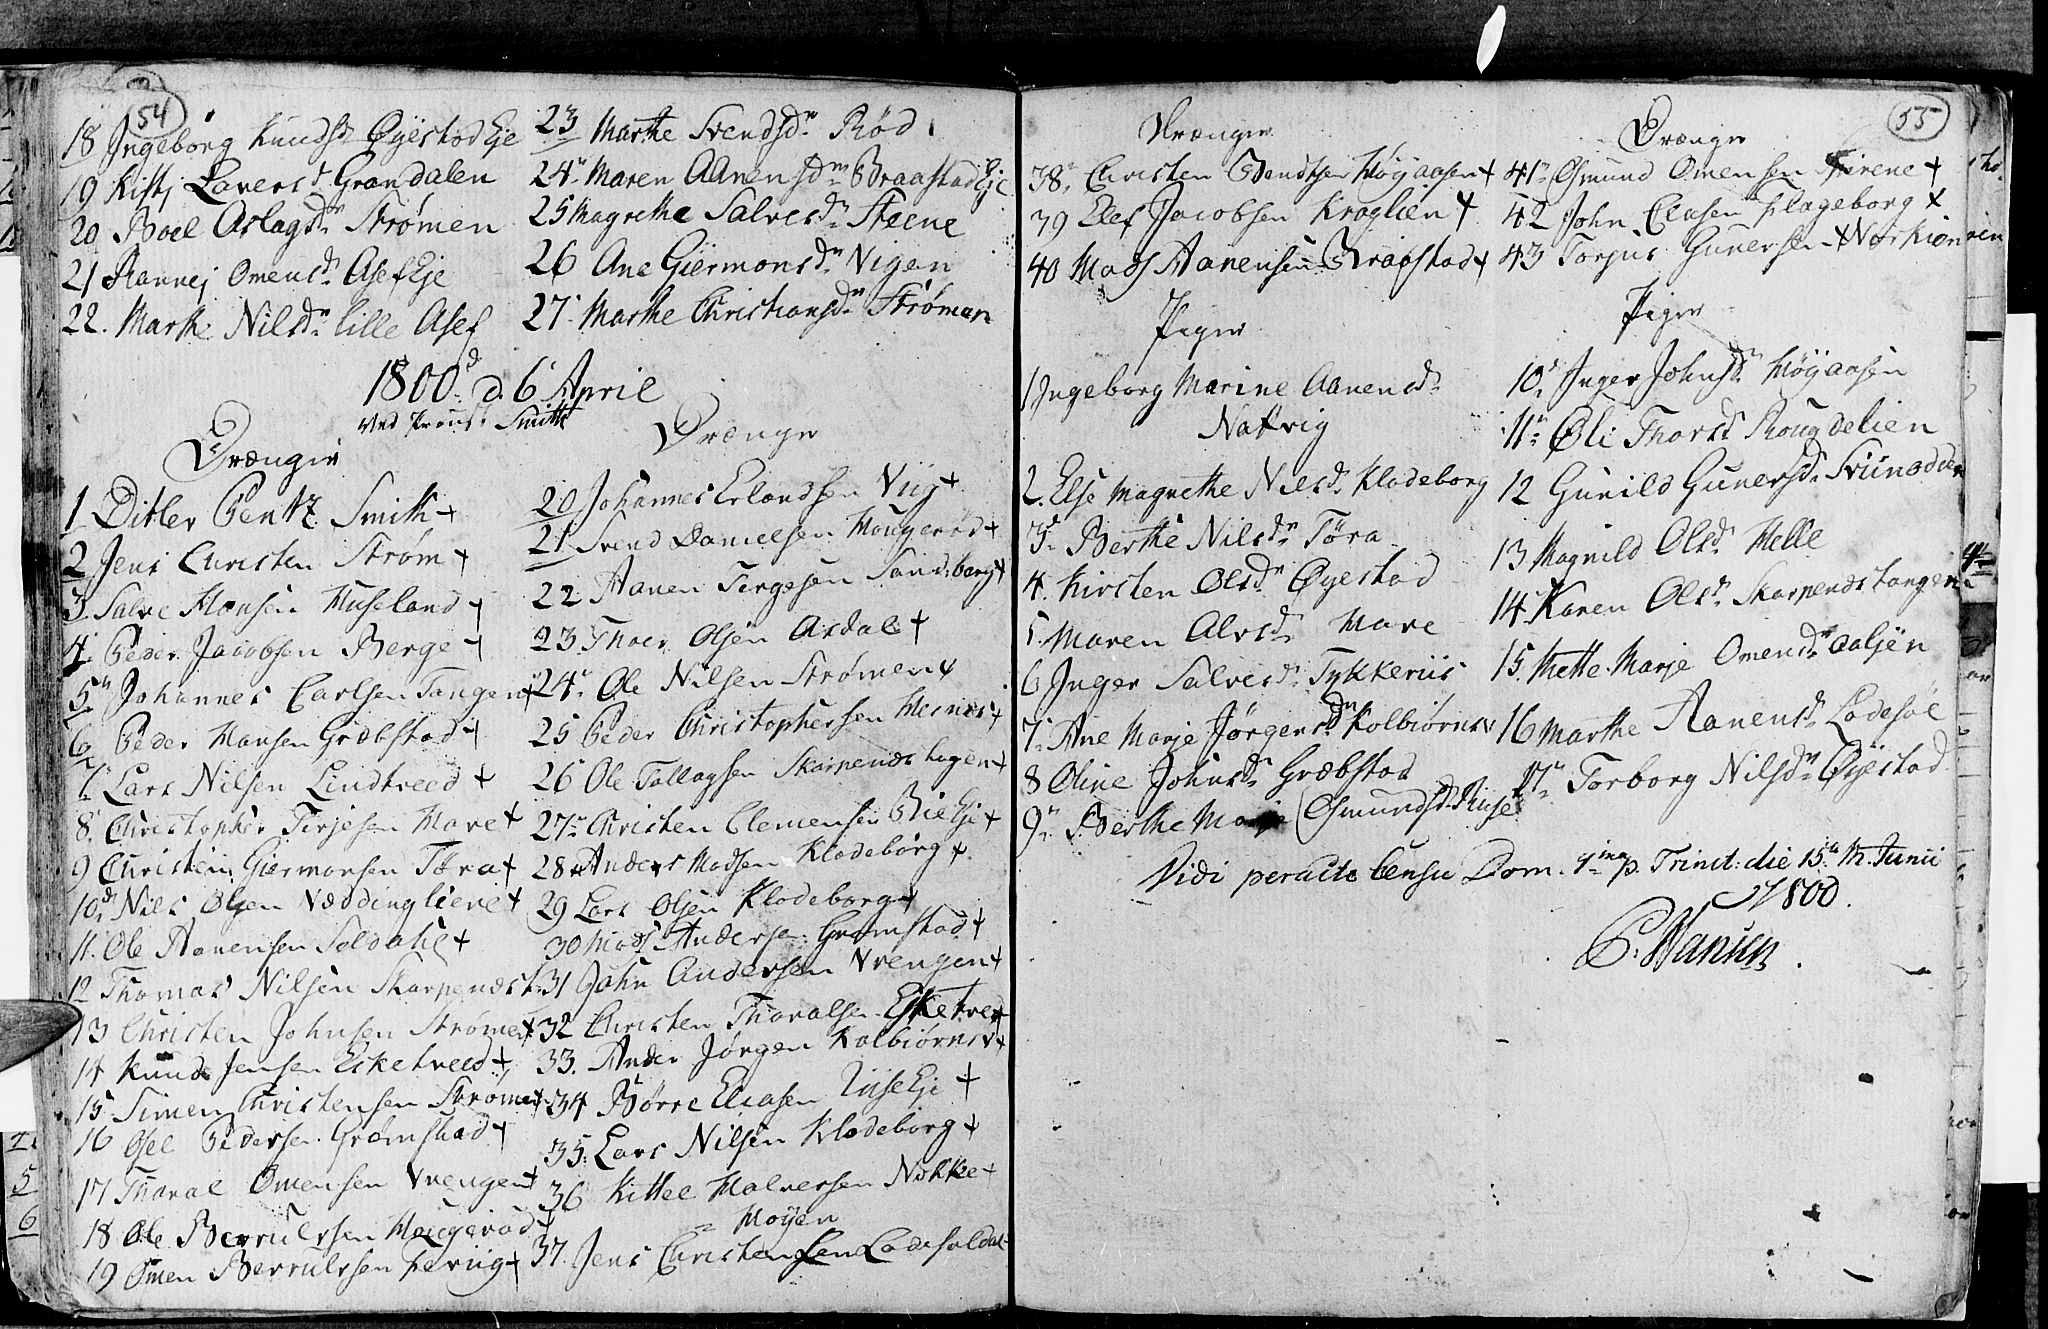 54
18 Ingeborg Knudsd Øÿestad Eje
19 Kisti Laversd Grandalen
20 Boel Aslagsdr Strømen
21 Rannej Omensdr Asef Eje
22. Marthe Nilsdr lille Asef
23 Marthe Svendsdr Rød
24 Maren Aanensdr Braastad Eje
25 Magrethe Salvesdr Steene
26 Ane Giermonsdr Vigen
27 Marthe Christiansdr Strømen
1800 d. 6 April
ved Provst Smith
Drænger
1 Ditlev Pentz Smith +
2 Jens Christen Strøm +
3 Salve Hansen Huseland +
4 Peder Jacobsen Berge +
5 Johannes Carlsen Tangen +
6 Peder Hansen Græbstad +
7 Lars Nilsen Lindtveed +
8 Christopher Terjesen Mare +
9 Christen Giermonsen Tøra +
10 Nils Olsen Væddingliene +
11. Ole Aanensen Soldahl +
12 Thomas Nilsen Skarpenæs +
13 Christen Johnsen Strømen +
14 Knud Jensen Esketveed +
15 Simen Christensen Strømen +
16 Osel Pedersen Grømstad +
17 Tharal Omensen Vrengen +
18 Ole Berrulsen Hougerød +
19 Omen Berrulsen +
Drænger
20 Johannes Erlandsen Viig +
21 Svend Danielsen Hougerød +
22 Aanen Tergesen Sandberg +
23 Thoer Olsen Asdal +
24 Ole Nilsen Strømen +
25 Peder Christophersen Hesnes +
26 Ole Tallagsen Skarpenæs tagen +
27 Christen Clemensen Bie Eje +
28 Anders Madsen Klodeborg +
29 Lars Olsen Klodeborg +
30 Mads Andersen Grømstad +
31 John Andersen Vrengen +
32 Christen Tharalsen Esketved +
33. Ander Jørgen Kolbiørnsv +
34 Børre Eliasen Eje +
35: Lars Nilsen Klodeborg +
36 Kittel Halversen Nøkke +
= Moÿen
37. Jens Christensen Ladesoldal
55
Drænger
38 Christen Bendtsen Høÿaasen +
39 Elef Jacobsen Kroglien +
40 Mads Aanensen Braastad +
Drænger
41 Osmund Omensen +
42 John Eliasen Klageborg +
43 Torjus Gunersen + Nørkionoien
Piger
1 Ingeborg Marine Aanensdr
Natvig
2. Else Magrethe Nilsdr Klodeborg
3 Berthe Nilsdr Tøra
4. Kirsten Olsdr Øyestad
5. Maren Alvsdr Mare
6 Inger Salvesdr Tykkeriis
7 Ane Marje Jørgensdr Kolbiørnsv
8 Oline Johnsdr Græbstad
9 Berthe Marje Osmundsdr
Piger
10 Inger Johnsdr Høÿaasen
11 Øli Tharsd Rougdelien
12 Gunild Gunersdr
13 Magnild Olsdr Helle
14 Karen Olsdr Skarpenæstangen
15. Mette Marje Omensdr
16 Marthe Aanensdr Ladesøl
17 Torborg Nilsdr Øÿestad
Vidi peracto Censu Dom. 1ma p. Trinit: die 15 M. Junii
1800.
P. Hansen